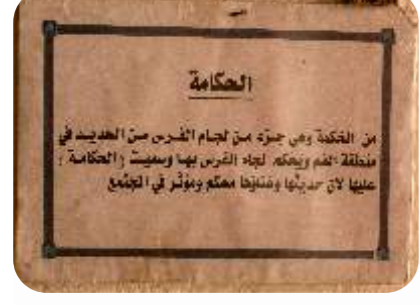 الحكامة
من الحكمة وهي جزء من لجام الفرس من الحديد في
منطقة الفم ويحكم لجام الفرس بها وسميت (الحكامة)
عليها لان حديثها وغناؤها محكم ومؤثر في المجتمع